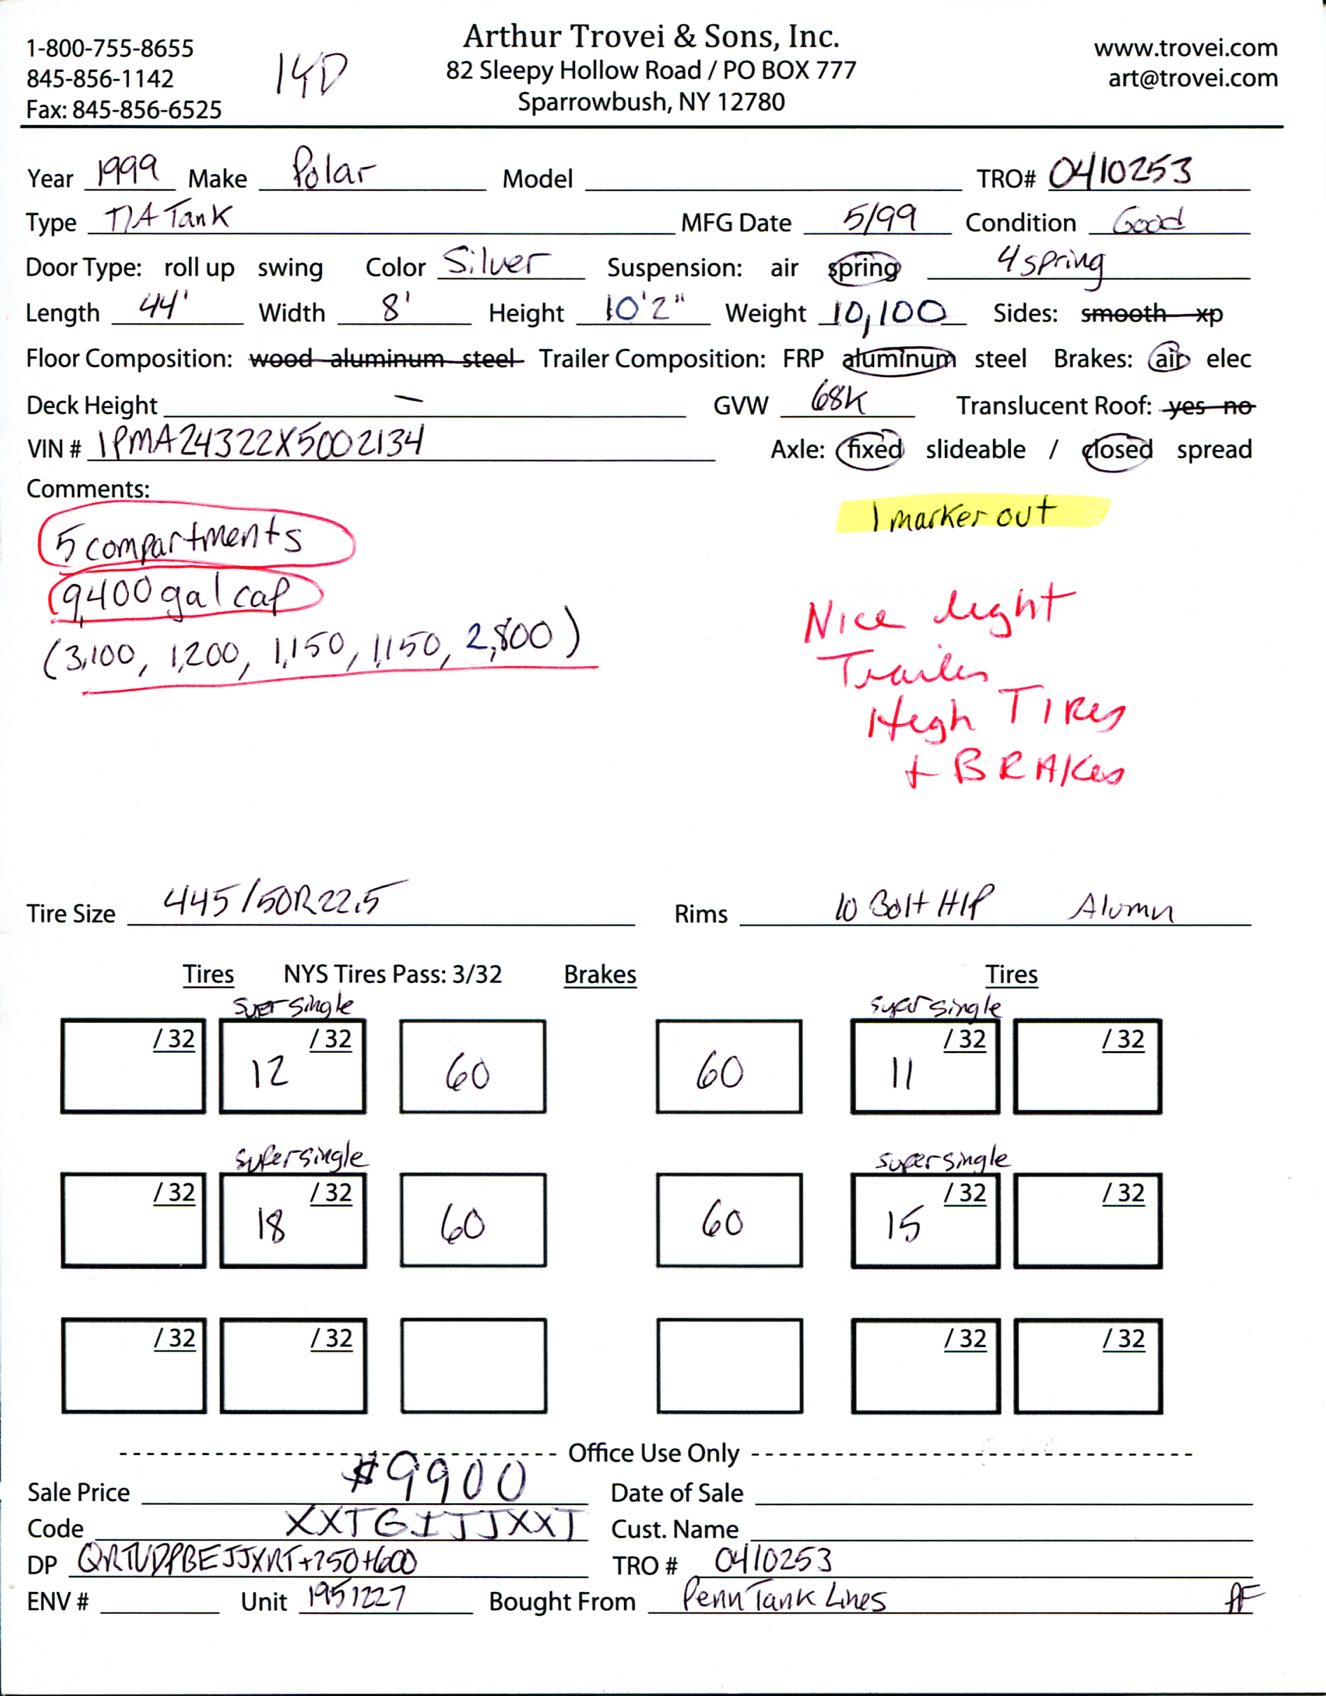 1-800-755-8655
845-856-1142
Fax: 845-856-6525
14D
Arthur Trovei & Sons, Inc.
82 Sleepy Hollow Road / PO BOX 777
Sparrowbush, NY 12780
www.trovei.com
art@trovei.com
Year 1999 Make Polar Model TRO# 0410253
Type T/A Tank MFG Date 5/99 Condition Good
Door Type: roll up swing Color Silver Suspension: air spring 4 spring
Length 44' Width 8' Height 10'2" Weight 10,100 Sides: smooth xp
Floor Composition: wood aluminum steel Trailer Composition: FRP aluminum steel Brakes: air elec
Deck Height — GVW 68K Translucent Roof: yes no
VIN # 1PMA24322X5002134 Axle: fixed slideable / closed spread
Comments:
1 marker out
5 compartments
9,400 gal cap
(3,100, 1,200, 1,150, 1,150, 2,800)
Nice light
Trailer
High TIRes
+ BRAKes
Tire Size 445/50R22.5 Rims 10 Bolt H/P Alumn
Tires NYS Tires Pass: 3/32 Brakes Tires
super single super single
/ 32 12 / 32 60 60 11 / 32 / 32
super single super single
/ 32 18 / 32 60 60 15 / 32 / 32
/ 32 / 32 / 32 / 32
Office Use Only
Sale Price $9900 Date of Sale
Code XXTGIJJXXT Cust. Name
DP +250+600 TRO # 0410253
ENV # Unit 1951227 Bought From Penn Tank Lines AF